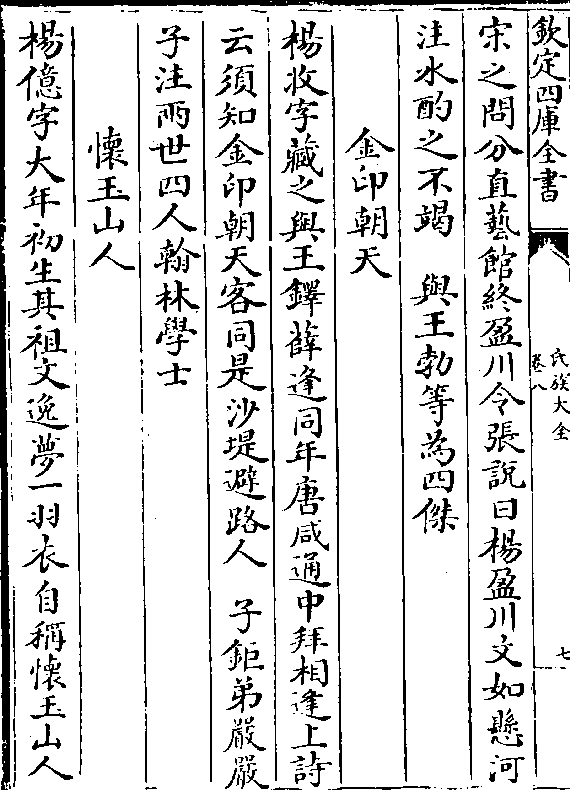 欽定四庫全書
氏族大全
卷八
七
宋之問分直藝館終盈川令張說曰楊盈川文如懸河
注水酌之不竭　與王勃等為四傑
金印朝天
楊收字藏之與王鐸薛逢同年唐咸通中拜相逢上詩
云須知金印朝天客同是沙堤避路人　子鉅弟嚴嚴
子注兩世四人翰林學士
懷玉山人
楊億字大年初生其祖文逸夢一羽衣自稱懷玉山人